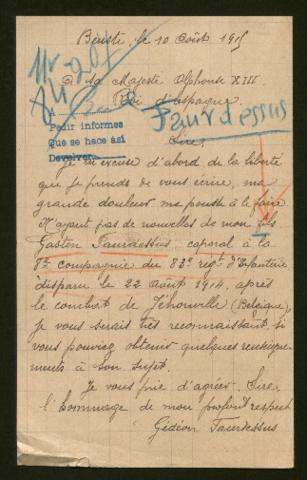 le 10 Août 1915
A Sa Majesté Alphonse XIII
Roi d'espagne
Faurdessus
Pedir informes
Que se hace así
Devolver
Sire,
Je m'excuse d'abord de la liberté
que je prends de vous écrire, ma
grande douleur me pousse à le faire
N'ayant pas de nouvelles de mon fils
Gaston Faurdessus, caporal à la
8e compagnie du 83e régt d'Infanterie
disparu le 22 Août 1914, après
le combat de Jéhonville (Belgique),
je vous serais très reconnaissant si
vous pouviez obtenir quelques renseigne-
ments à son sujet.
Je vous prie d'agréer, Sire,
l'hommage de mon profond respect
Gédéon Faurdessus